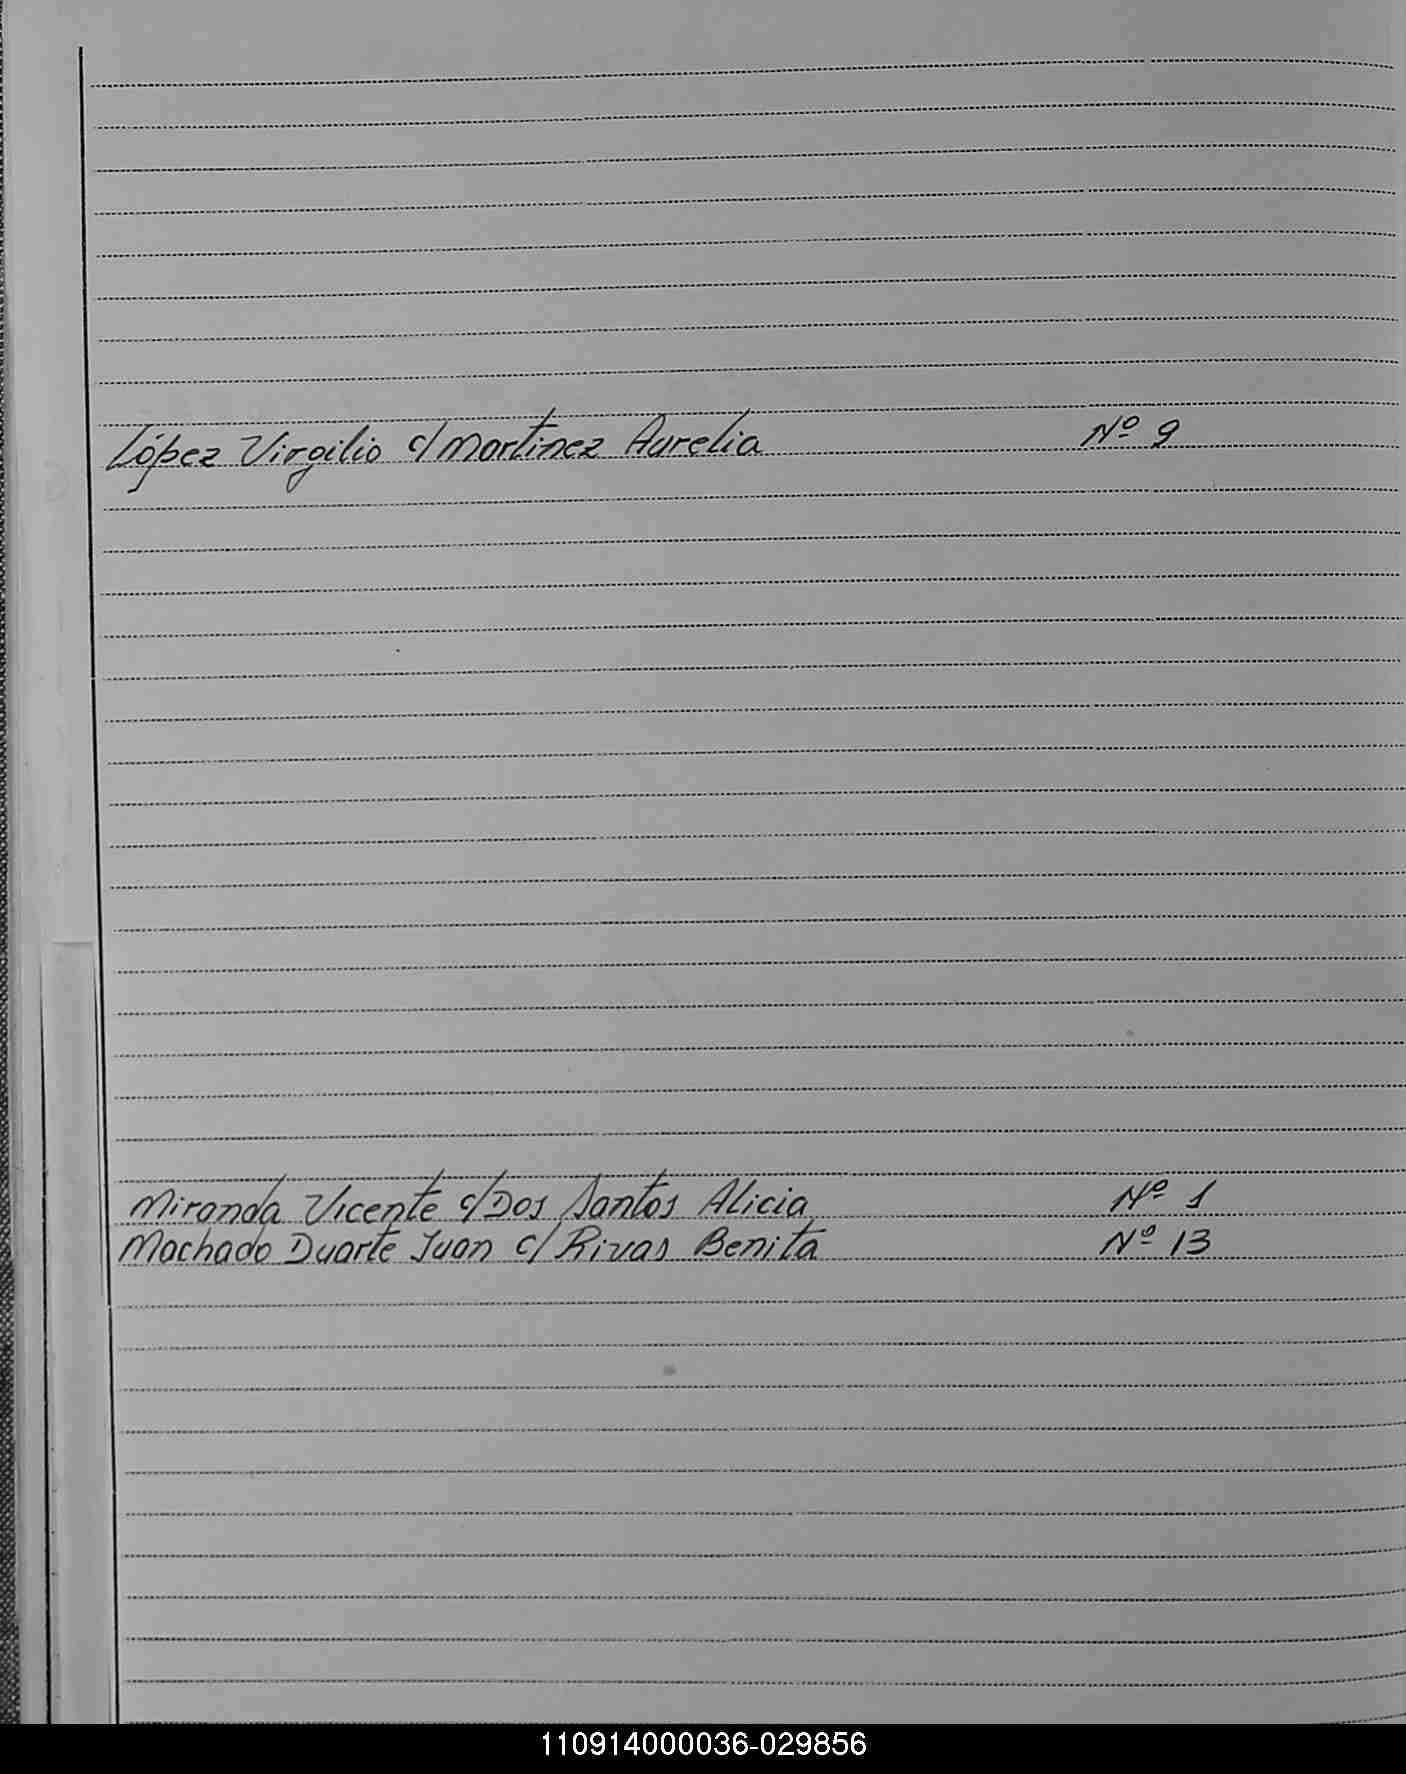 López Virgilio c/ Martinez Aurelia Nº 9
Miranda Vicente c/ Dos Santos Alicia Nº 1
Machado Duarte Juan c/ Rivas Benita Nº 13
110914000036-029856